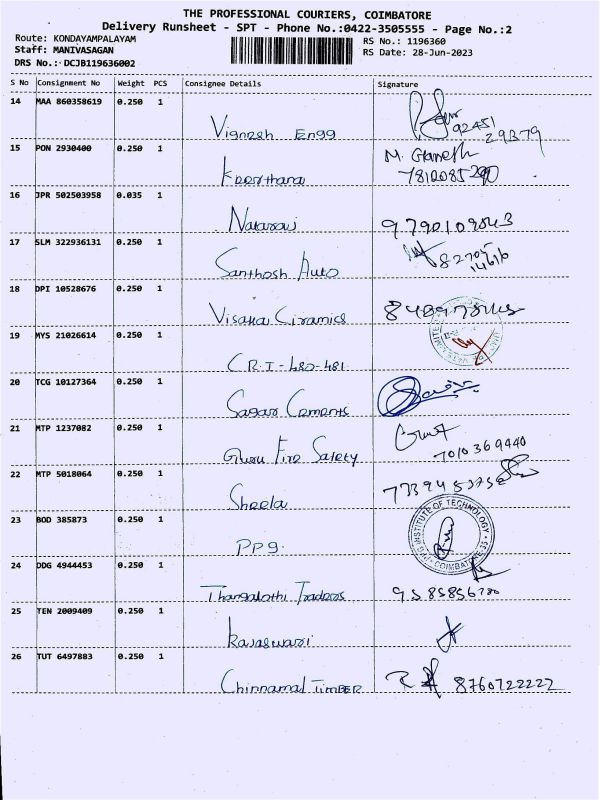 THE PROFESSIONAL COURIERS, COIMBATORE
Delivery Runsheet - SPT - Phone No.:0422-3505555 - Page No.:2
Route: KONDAYAMPALAYAM
RS No.: 1196360
Staff: MANIVASAGAN
RS Date: 28-Jun-2023
DRS No.: DCJB119636002
S No Consignment No Weight PCS Consignee Details Signature
14 MAA 860358619 0.250 1
Vignesh Engg
92451
29379
15 PON 2930400 0.250 1
Keerthana
M. Ganesh
7810085290
16 JPR 502503958 0.035 1
Natarasu
9790109843
17 SLM 322936131 0.250 1
Santhosh Auto
18 DPI 10528676 0.250 1
Visaka Ciramics
19 MYS 21026614 0.250 1
C.R.I - 480-481
20 TCG 10127364 0.250 1
Sagar Cements
21 MTP 1237082 0.250 1
Guru Fire Safety
7010369440
22 MTP 5018064 0.250 1
Sheela
23 BOD 385873 0.250 1
PPg.
PPG INSTITUTE OF TECHNOLOGY
COIMBATORE-35
24 DDG 4944453 0.250 1
Thangalathi Traders
9585856780
25 TEN 2009409 0.250 1
Rajaswari
26 TUT 6497883 0.250 1
Chinnamal TIMBER
8760722222